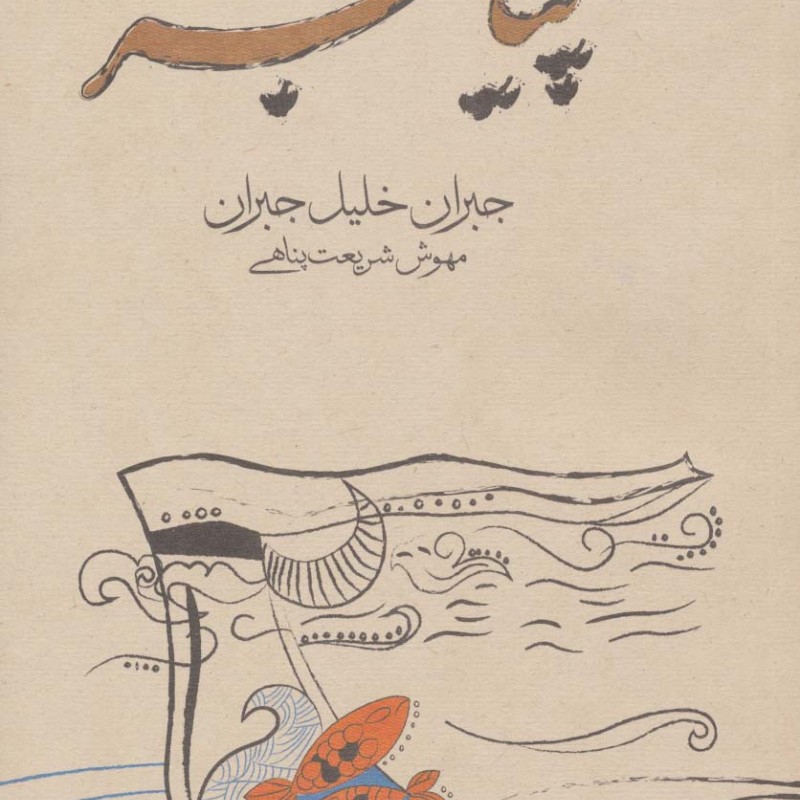 پیامبر
جبران خلیل جبران
مهوش شریعت‌پناهی